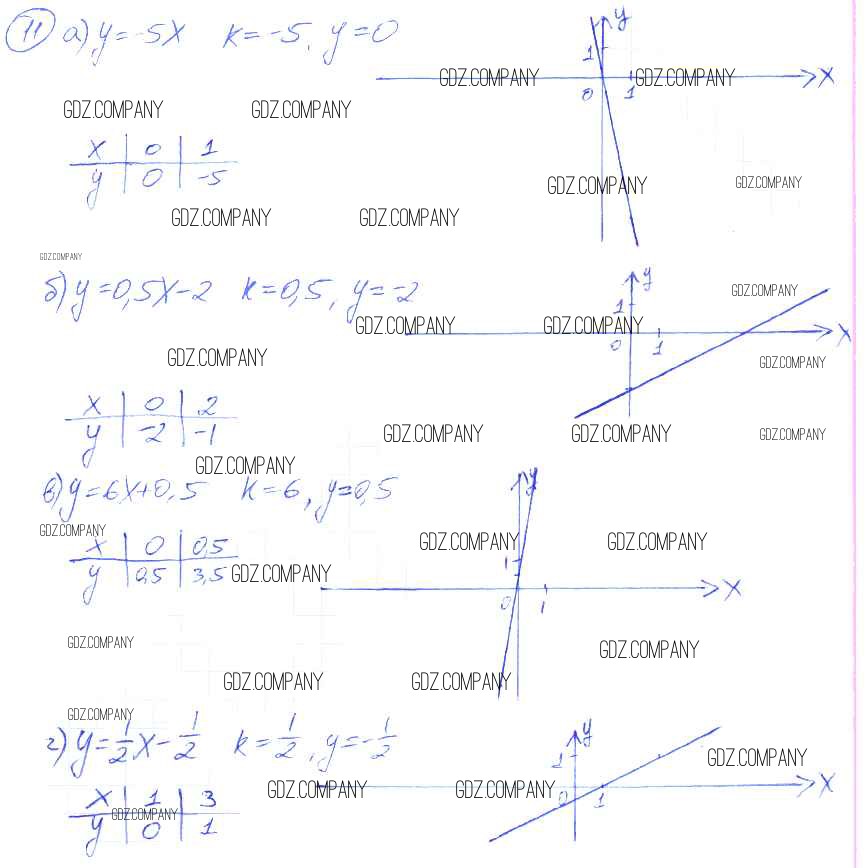 11 а) y=-5x k=-5, y=0
y
1
GDZ.COMPANY GDZ.COMPANY x
0 1
GDZ.COMPANY GDZ.COMPANY
x | 0 | 1
y | 0 | -5
GDZ.COMPANY GDZ.COMPANY
GDZ.COMPANY GDZ.COMPANY
GDZ.COMPANY
б) y=0,5x-2 k=0,5, y=-2
y
GDZ.COMPANY
1
GDZ.COMPANY GDZ.COMPANY x
0 1
GDZ.COMPANY GDZ.COMPANY
x | 0 | 2
y | -2 | -1
GDZ.COMPANY GDZ.COMPANY GDZ.COMPANY
GDZ.COMPANY
в) y=6x+0,5 k=6, y=0,5
y
GDZ.COMPANY
GDZ.COMPANY GDZ.COMPANY
x | 0 | 0,5
y | 0,5 | 3,5
GDZ.COMPANY
1
x
0 1
GDZ.COMPANY GDZ.COMPANY
GDZ.COMPANY GDZ.COMPANY
GDZ.COMPANY
г) y=1/2x-1/2 k=1/2, y=-1/2
y
1
GDZ.COMPANY
GDZ.COMPANY GDZ.COMPANY x
0 1
x | 1 | 3
GDZ.COMPANY
y | 0 | 1